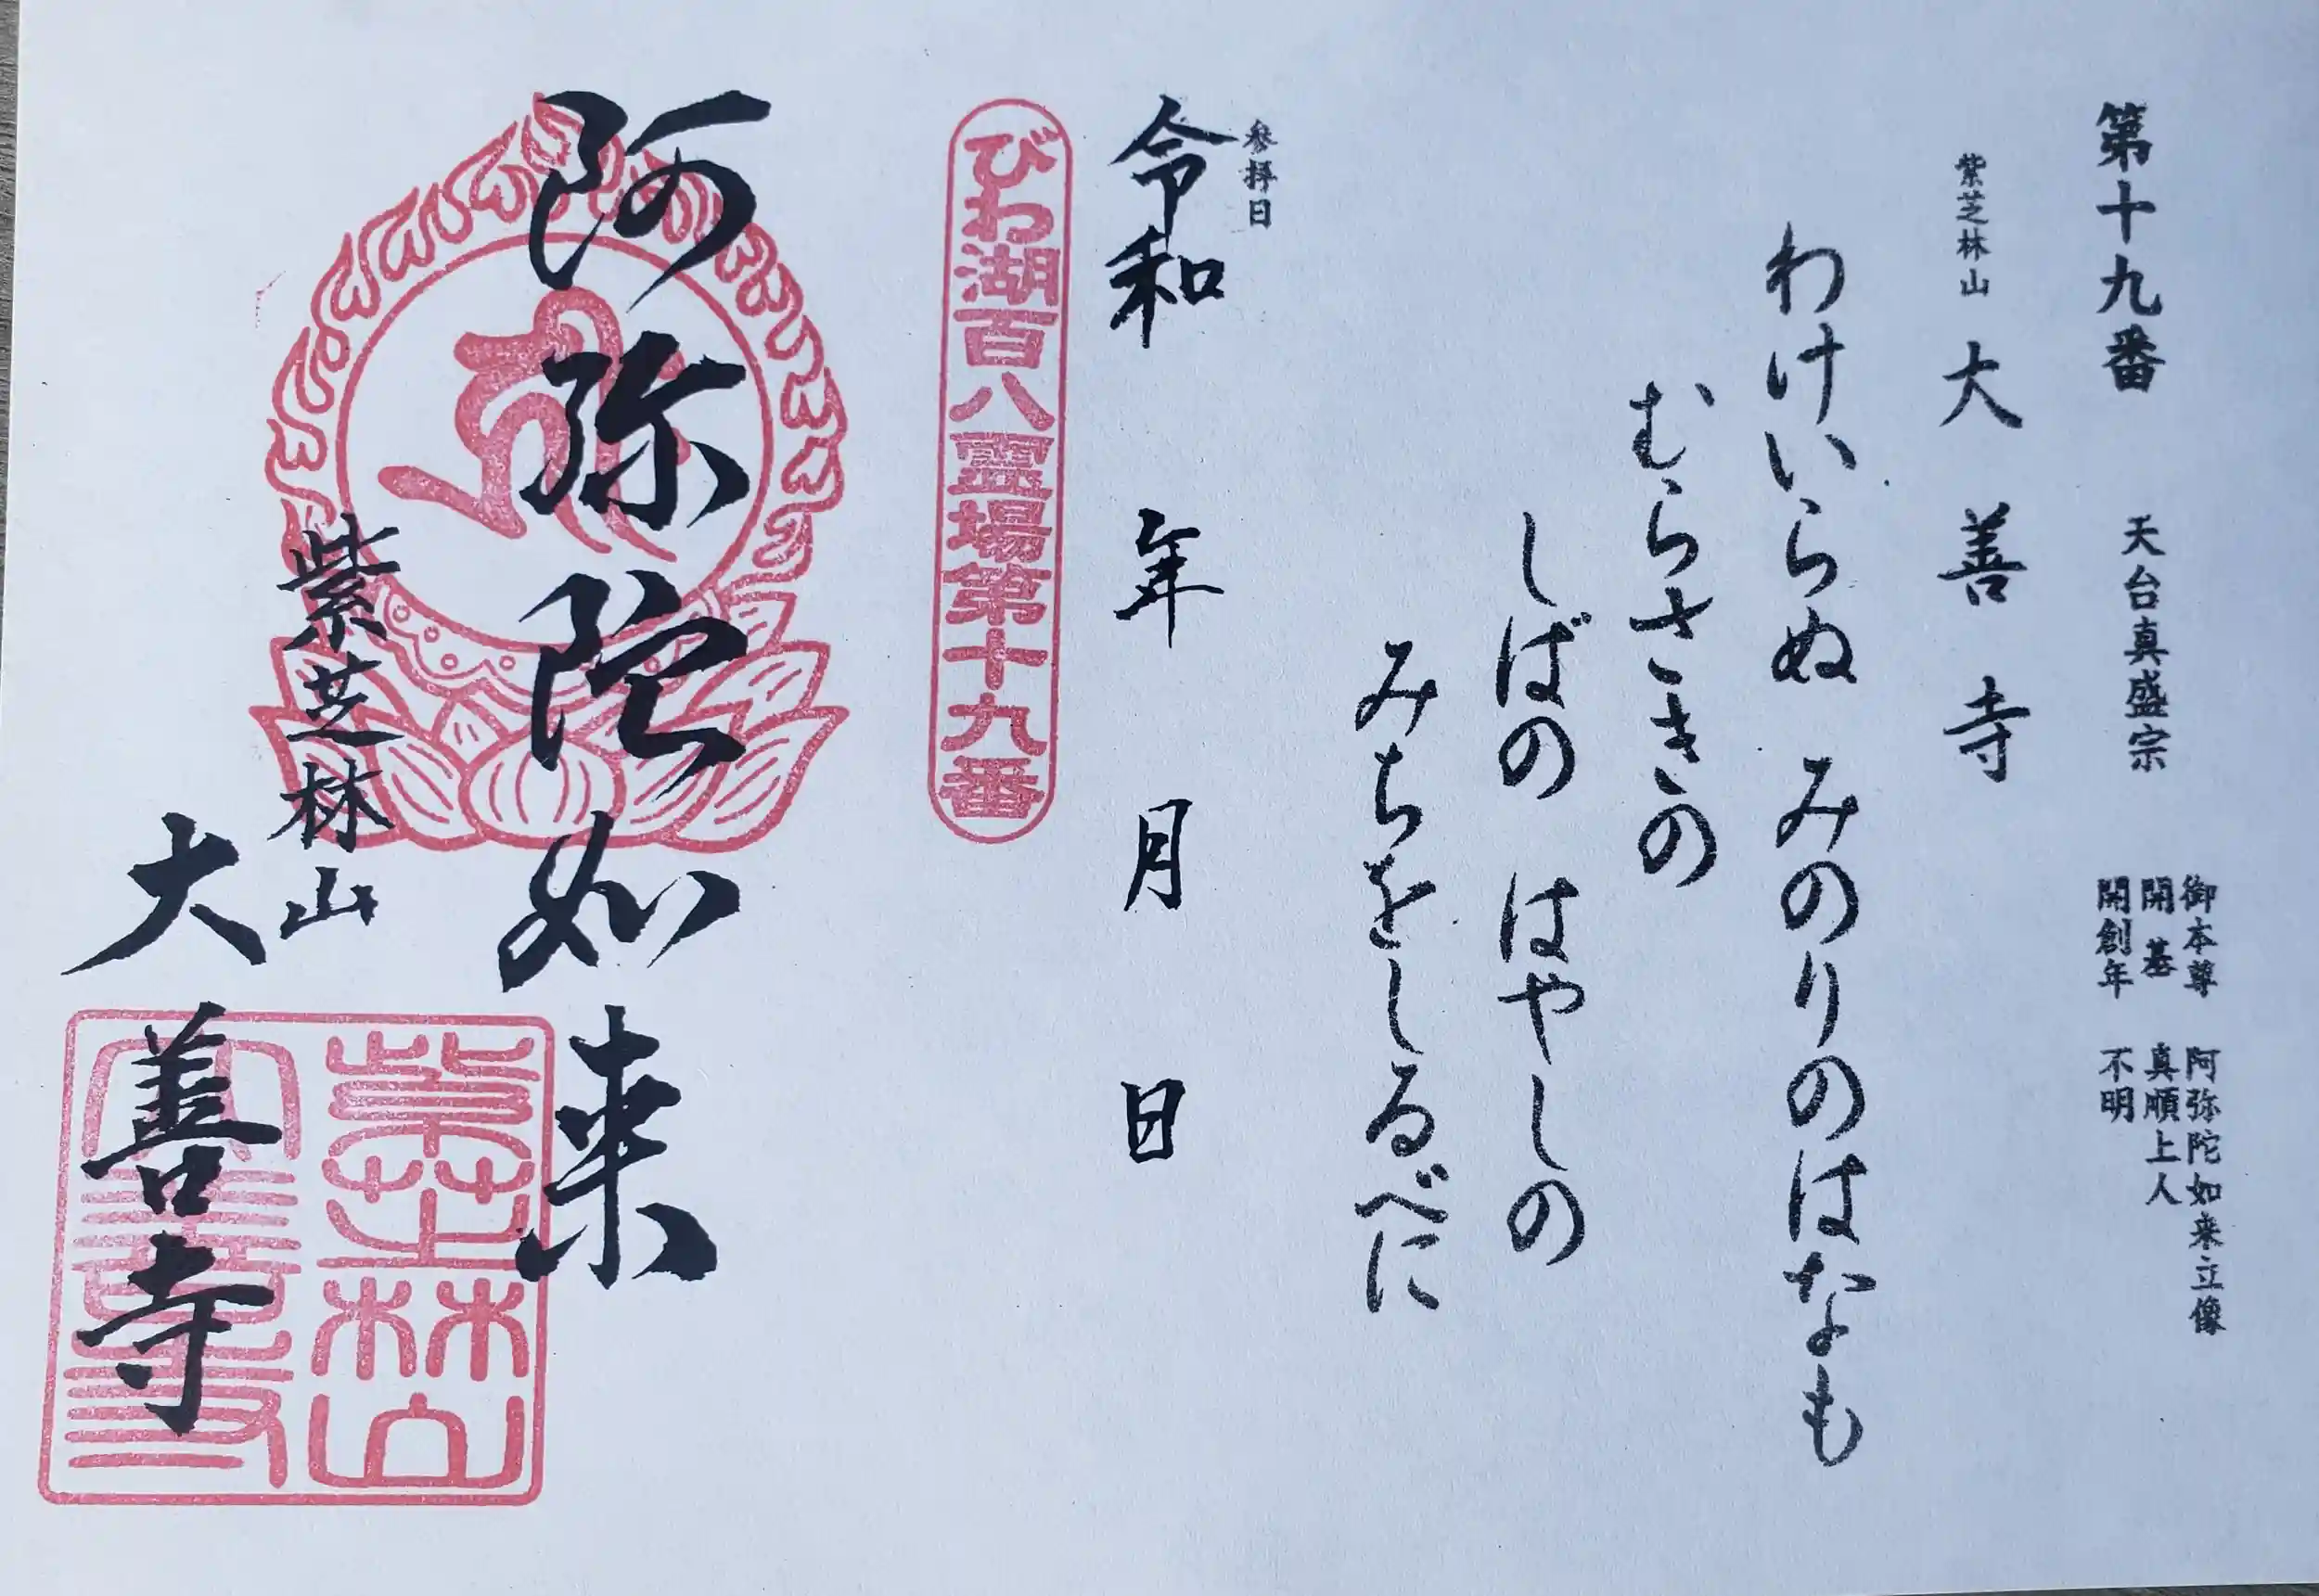 第十九番 天台真盛宗
御本尊 阿弥陀如来立像
開基 真順上人
開創年 不明
紫芝林山 大善寺
わけいらぬ みのりのはなも
むらさきの
しばの はやしの
みちをしるべに
参拝日
令和 年 月 日
びわ湖百八霊場第十九番
阿弥陀如来
紫芝林山
大善寺
紫芝林山
大善寺